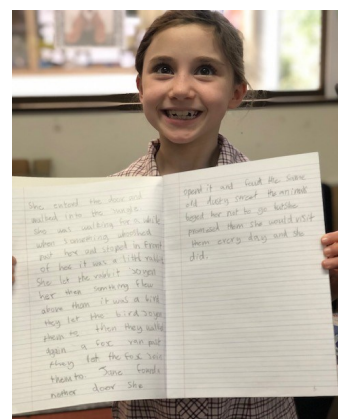 She enterd the door and
walked into the jungle
She was walking for a while
when something
past her and stoped in front
of her it was a little rabbit
She let the rabbit joyen
her then somthing flew
above them it was a bird
they let the bird joyen
them to then they walked
again a fox ran past
they let the fox joyen
them to. Jane found
nother door she
opend it and found the same
old dusty street the animals
beged her not to go but she
promised them she would visit
them every day and she
did.